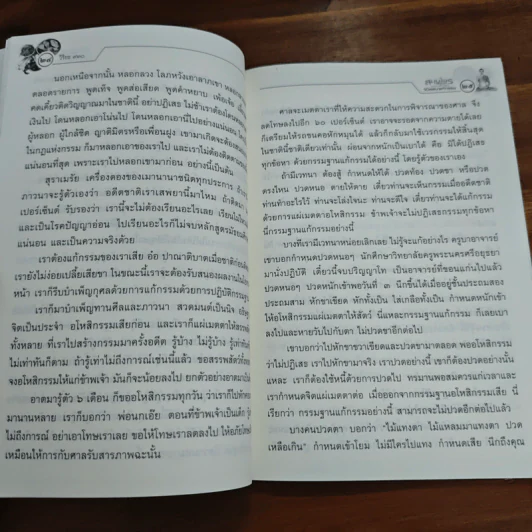 นอกเหนือจากนั้น หลอกลวง โลภหวังเอาลาภเขา หลอก
ตลอดรายการ พูดเท็จ พูดส่อเสียด พูดคำหยาบ เพ้อเจ้อ
คดเคี้ยวคิดวิญญาณมาในชาตินี้ อย่าปฏิเสธ ไม่ช้าเราต้องโดน
เงินไป โดนหลอกเอาโน่นไป โดนหลอกเอานี่ไปอย่างแน่นอน
ผู้หลอก ผู้ใกล้ชิด ญาติมิตรหรือเพื่อนฝูง เขามาเกิดจะต้อง
ในกฎแห่งกรรม ก็มาหลอกเอาของเราไป และเราก็ไม่ต้องติดตาม
แน่นอนที่สุด เพราะเราไปหลอกเขามาก่อน อย่างนี้เป็นต้น
สุราเมรัย เครื่องดองของเมานานาชนิดทุกประการ
ภาวนาจะรู้ตัวเองว่า อดีตชาติเราเสพยานี้มาไหม ถ้าติดมา
เปอร์เซ็นต์ รับรองว่า เรานี้จะไม่ต้องเรียนอะไรเลย เรียนไม่ไหว
และเป็นโรคปัญญาอ่อน ไปเรียนอะไรก็ไม่จบหลักสูตรมัธยม
แน่นอน และเป็นความจริงด้วย
เราต้องแก้กรรมของเราเสีย อ๋อ ปาณาติบาตเมื่อชาติก่อน
เรายังไม่ง่อยเปลี้ยเสียขา ในขณะนี้เราจะต้องรับสนองผลงานใน
หน้า เราก็รีบบำเพ็ญกุศลด้วยการแก้กรรมด้วยการปฏิบัติกรรมฐาน
เราก็มาบำเพ็ญทานศีลและภาวนา สวดมนต์เป็นนิจ อธิษฐาน
จิตเป็นประจำ อโหสิกรรมเสียก่อน และเราก็แผ่เมตตาให้สรรพสัตว์
ทั้งหลาย ที่เราไปสร้างกรรมมาครั้งอดีต รู้บ้าง ไม่รู้บ้าง รู้เท่าทัน
ไม่เท่าทันก็ตาม ถ้ารู้เท่าไม่ถึงการณ์เช่นนี้แล้ว ขอสรรพสัตว์ทั้งหลาย
จงอโหสิกรรมให้แก่ข้าพเจ้า มันก็จะน้อยลงไป ยกตัวอย่างอาตมาเป็นต้น
อาตมารู้ตัว ๖ เดือน ก็ขออโหสิกรรมทุกวัน ว่าเราก็ไปหักคอ
มานานหลาย เราก็บอกว่า พ่อนกเอ๊ย ตอนที่ข้าพเจ้าเป็นเด็ก
ไม่ถึงการณ์ อย่าเอาโทษเราเลย ขอให้โทษเราลดลงไป ให้อภัยโทษ
เหมือนให้การกับศาลรับสารภาพฉะนั้น
ศาลจะเมตตาเราที่ให้ความสะดวกในการพิจารณาของศาล จึง
ลดโทษลงไปอีก ๖๐ เปอร์เซ็นต์ เราอาจจะรอดจากความตายได้เลย
ก็เตรียมให้รถชนคอหักหมุนได้ แล้วก็กลับมาใช้เวรกรรมให้สิ้นสุด
ในชาตินี้ชาติเดียวเท่านั้น ผ่อนจากหนักเป็นเบาได้ คือ มิได้ปฏิเสธ
ทุกข้อหา ด้วยกรรมฐานแก้กรรมได้อย่างนี้ โดยรู้ตัวของเราเอง
ถ้ามีเวทนา ต้องสู้ กำหนดให้ได้ ปวดท้อง ปวดขา หรือปวด
ตรงไหน ปวดหนอ ตายให้ตาย เดี๋ยวท่านจะเห็นกรรมเมื่ออดีตชาติ
ท่านทำอะไรไว้ ท่านจะโล่งใจนะ ท่านจะดีใจ เดี๋ยวท่านจะได้แก้กรรม
ด้วยการแผ่เมตตาอโหสิกรรม ข้าพเจ้าจะไม่ปฏิเสธกรรมทุกข้อหา
นี่กรรมฐานแก้กรรมอย่างนี้
บางทีเรามีเวทนาหน่อยเลิกเลย ไม่รู้จะแก้อย่างไร ครูบาอาจารย์
เขาบอกกำหนดปวดหนอๆ นักศึกษาวิทยาลัยครูพระนครศรีอยุธยา
มานั่งปฏิบัติ เดี๋ยวนี้จบปริญญาโท เป็นอาจารย์ที่ขอนแก่นไปแล้ว
ปวดหนอๆ ปวดหนักเข้าพอวันที่ ๓ นึกขึ้นได้เมื่ออยู่ชั้นประถมสอง
ประถมสาม หักขาเขียด หักทั้งเป็น ใส่เกลือทั้งเป็น กำหนดหนักเข้า
ให้อโหสิกรรมแผ่เมตตาให้สัตว์ นี่แหละกรรมฐานแก้กรรม ก็เลยเบา
ลงไปและหายวับไปกับตา ไม่ปวดขาอีกต่อไป
เขาบอกว่าไปหักขาขวาเขียดและปวดขามาตลอด พออโหสิกรรม
ว่าไม่ปฏิเสธ เราไปหักขามาจริง เราปวดอย่างนี้ เขาก็ต้องปวดอย่างนั้น
แหละ เราก็ต้องใช้หนี้ด้วยการปวดไป ทรมานพอสมควรแก่เวลาและ
เราก็กำหนดจิตแผ่เมตตาต่อ เมื่อออกจากกรรมฐานอโหสิกรรมเสีย นี่
เรียกว่า กรรมฐานแก้กรรมอย่างนี้ สามารถจะไม่ปวดอีกต่อไปแล้ว
บางคนปวดตา บอกว่า "ไม้แทงตา ไม้แหลมมาแทงตา ปวด
เหลือเกิน" กำหนดเข้าโยม ไม่มีใครไปแทง กำหนดเสีย นึกถึงคุณ